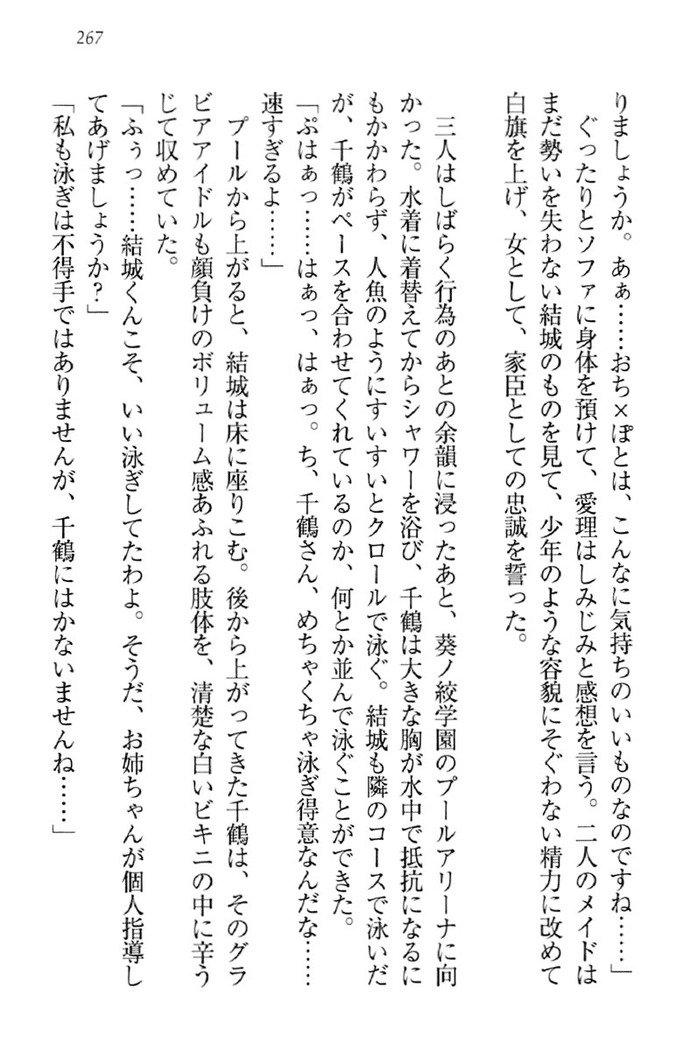 267
りましょうか。あぁ……おち×ぽとは、こんなに気持ちのいいものなのですね……」
ぐったりとソファに身体を預けて、愛理はしみじみと感想を言う。二人のメイドは
まだ勢いを失わない結城のものを見て、少年のような容貌にそぐわない精力に改めて
白旗を上げ、女として、家臣としての忠誠を誓った。
三人はしばらく行為のあとの余韻に浸ったあと、葵ノ紋学園のプールアリーナに向
かった。水着に着替えてからシャワーを浴び、千鶴は大きな胸が水中で抵抗になるに
もかかわらず、人魚のようにすいすいとクロールで泳ぐ。結城も隣のコースで泳いだ
が、千鶴がペースを合わせてくれているのか、何とか並んで泳ぐことができた。
「ぷはぁっ……はぁっ、はぁっ。ち、千鶴さん、めちゃくちゃ泳ぎ得意なんだな……
速すぎるよ……」
プールから上がると、結城は床に座りこむ。後から上がってきた千鶴は、そのグラ
ビアアイドルも顔負けのボリューム感あふれる肢体を、清楚な白いビキニの中に辛う
じて収めていた。
「ふぅっ……結城くんこそ、いい泳ぎしてたわよ。そうだ、お姉ちゃんが個人指導し
てあげましょうか？」
「私も泳ぎは不得手ではありませんが、千鶴にはかないませんね……」